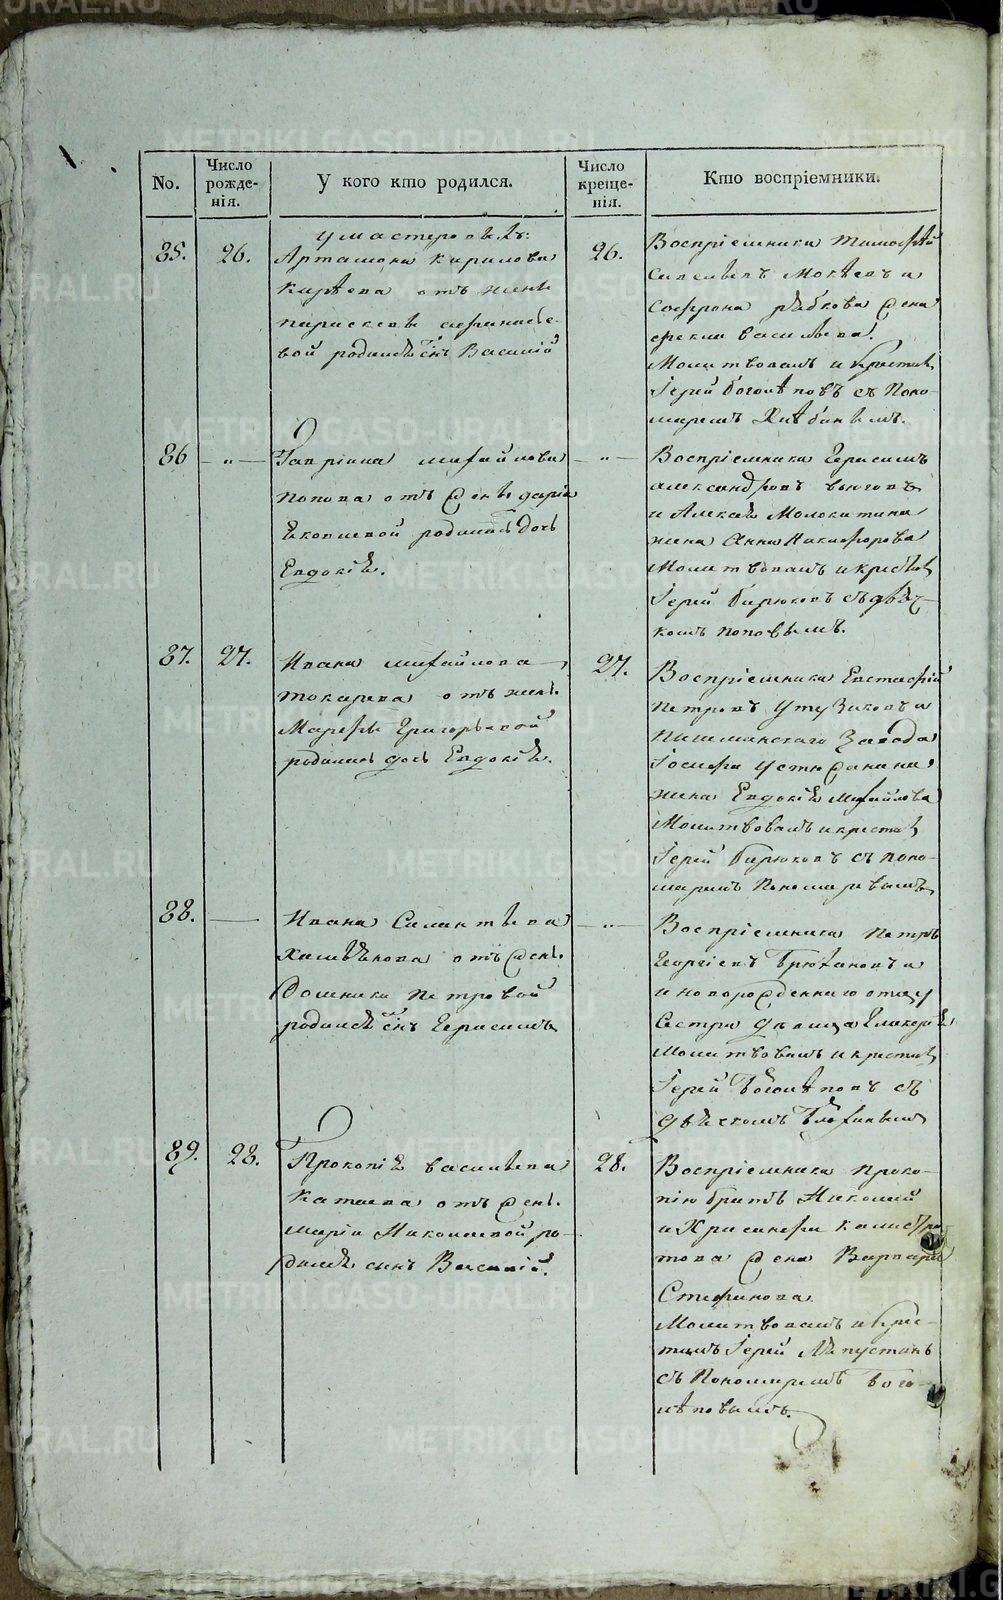 No.
Число рожде-
нія.
У кого кто родился.
Число креще-
нія.
Кто воспріемники.
85.
26.
у мастеровыхъ:
Артамона Кирилова
Кирѣева отъ жены
Параскевы Афанасье-
вой родился сынъ Василій
26.
Воспріемники Тимофей
Савельевъ Мокѣевъ и
Софрона Рябкова жена
Васильева.
Молитвовалъ и крестилъ
Іерей Боголѣповъ съ Поно-
маремъ Хлѣбинымъ.
86
"
Гавріила Михайлова
Попова отъ жены Дарьи
родилась дочь
Евдокія.
"
Воспріемники Герасимъ
Александровъ Вьюговъ
и Алексѣя Молокитина
жена Анна Никифорова
Молитвовалъ и крестилъ
Іерей Бирюковъ съ дьяч-
комъ Поповымъ.
87.
27.
Ивана Михайлова
Токарева отъ жены
Марѳы Григорьевой
родилась дочь Евдокія.
27.
Воспріемники Евстафій
Петровъ и
Пышминскаго Завода
Іосифа Устюжанина
жена Евдокія Михайлова
Молитвовалъ и крестилъ
Іерей Бирюковъ съ поно-
маремъ Пономаревымъ
88.
Ивана Силантьева
отъ жены
Домники Петровой
родился сынъ Герасимъ
"
Воспріемники Петръ
Георгіевъ Брюхановъ и
новорожденнаго отцу
Сестра дѣвица Гликерія
Молитвовалъ и крестилъ
Іерей Боголѣповъ съ
дьячкомъ
89.
28.
Прокопія Васильева
Катаева отъ жены
Маріи Николаевой ро-
дился сынъ Василій.
28.
Воспріемники Проко-
пію братъ Николай
и Хрисанфа Калистра-
това жена Варвара
Стефанова
Молитвовалъ и крес-
тилъ Іерей Лапустинъ
съ Пономаремъ Бого-
лѣповымъ.
METRIKI.GASO-URAL.RU